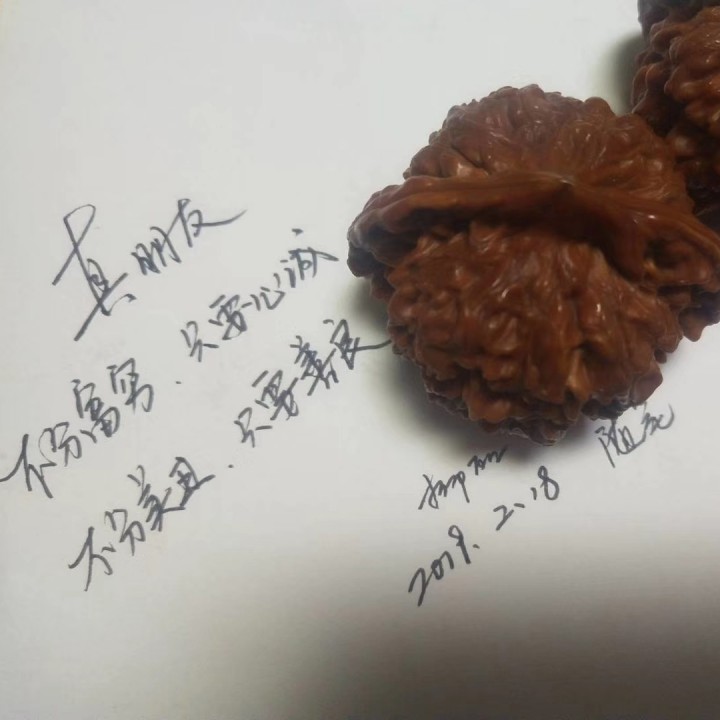 真朋友
不分富穷.只要心诚
不分美丑.只要善良
2019.2.18 随笔